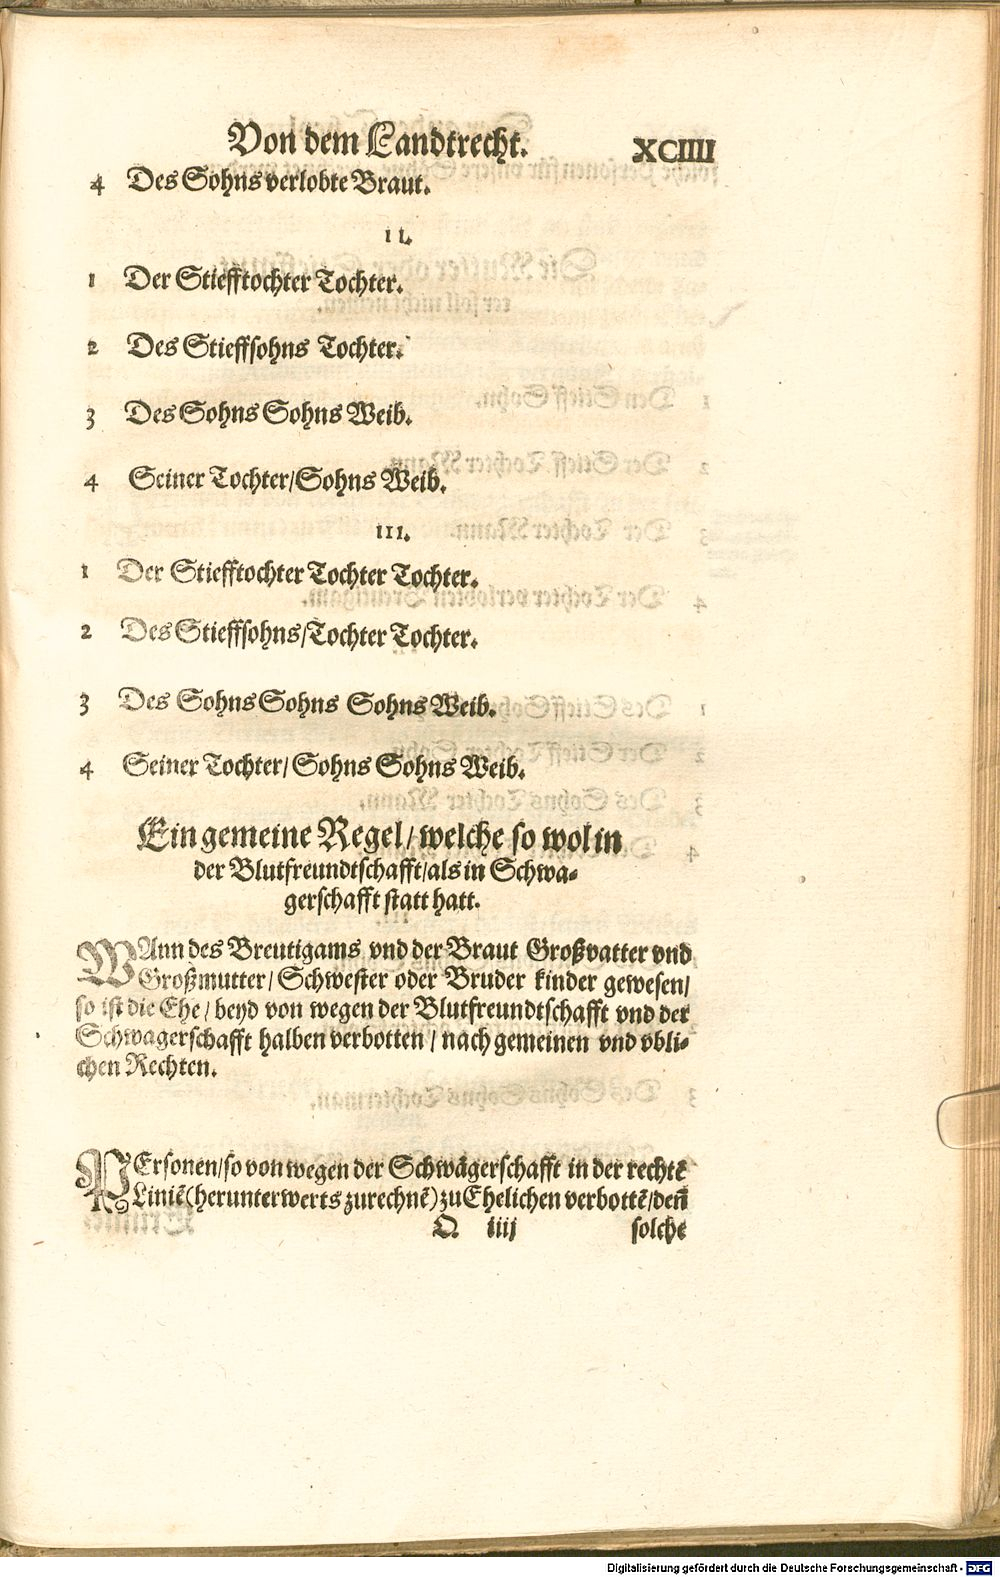 Von dem Landtrecht. XCIIII
4 Des Sohns verlobte Braut.
II.
1 Der Stiefftochter Tochter.
2 Des Stieffsohns Tochter.
3 Des Sohns Sohns Weib.
4 Seiner Tochter/Sohns Weib.
III.
1 Der Stiefftochter Tochter Tochter.
2 Des Stieffsohns/Tochter Tochter.
3 Des Sohns Sohns Sohns Weib.
4 Seiner Tochter/Sohns Sohns Weib.
Ein gemeine Regel/welche so wol in
der Blutfreundtschafft/als in Schwa-
gerschafft statt hatt.
WAnn des Breutigams vnd der Braut Großvatter vnd
Großmutter/Schwester oder Bruder kinder gewesen/
so ist die Ehe/beyd von wegen der Blutfreundtschafft vnd der
Schwagerschafft halben verbotten/nach gemeinen vnd vbli-
chen Rechten.
PErsonen/so von wegen der Schwägerschafft in der rechtē
Liniē(herunterwerts zurechnē)zu Ehelichen verbottē/deñ
Q iiij solche
Digitalisierung gefördert durch die Deutsche Forschungsgemeinschaft - DFG